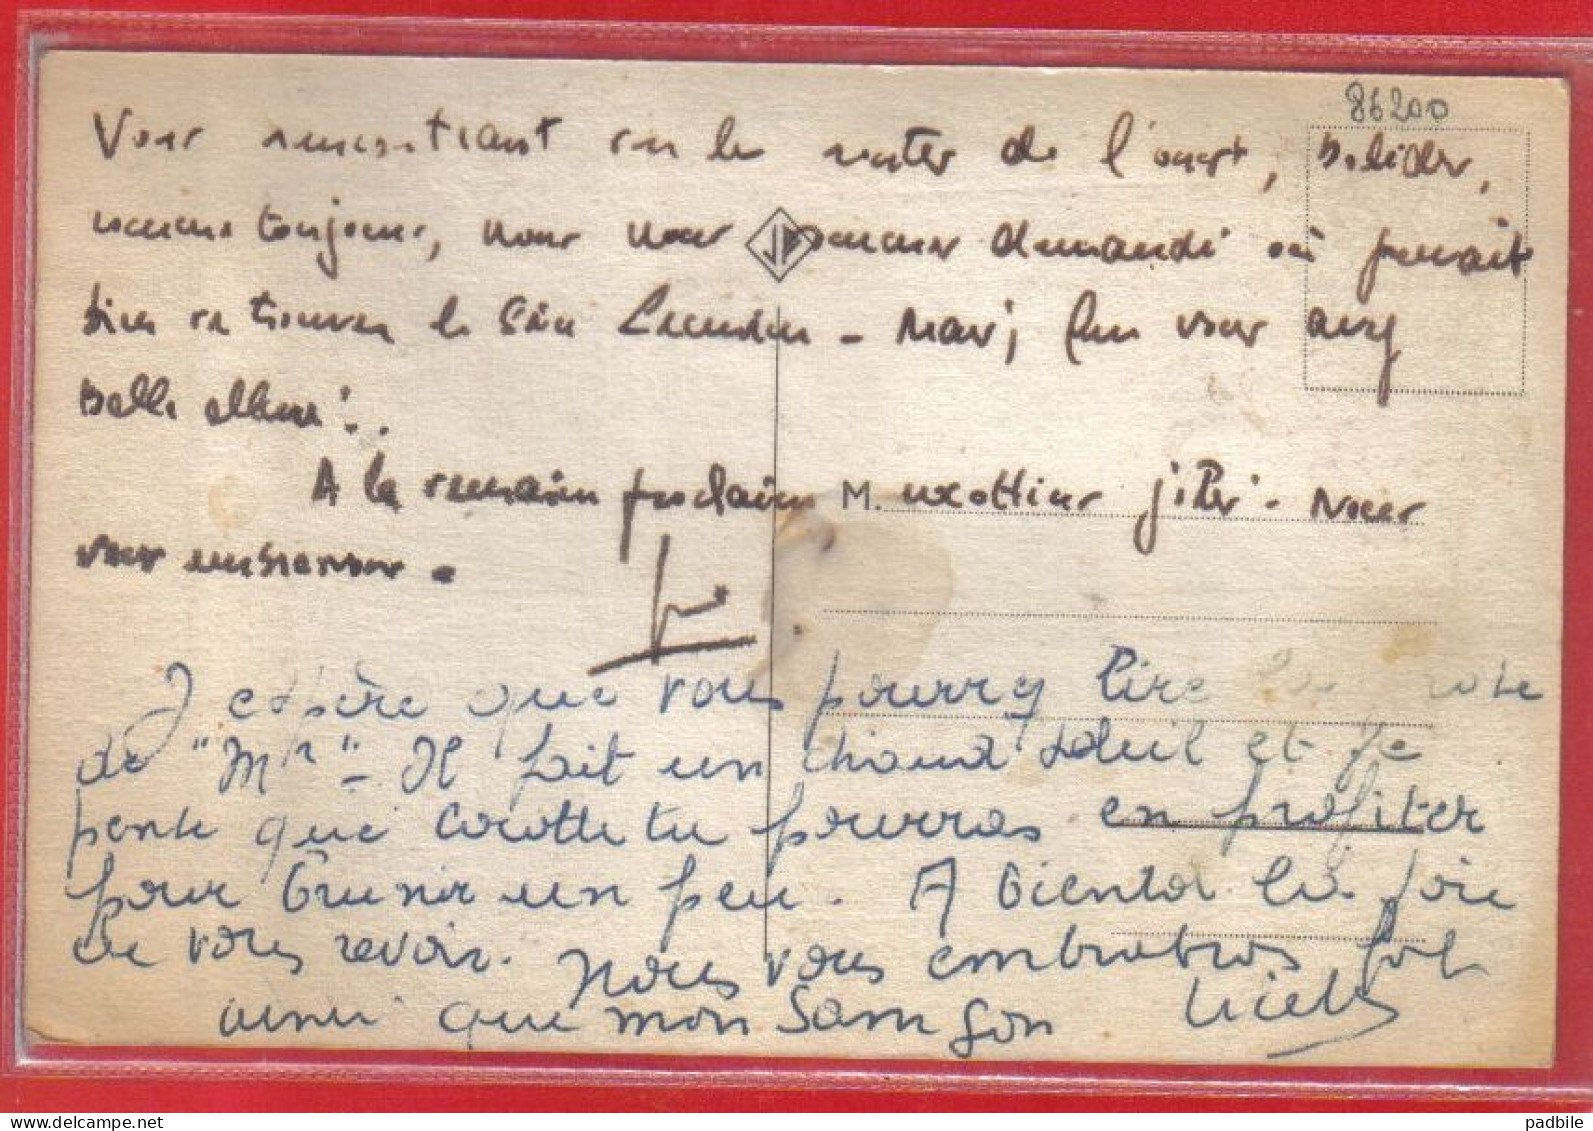 86200
Vous rencontrant sur les routes de l'ouest, solides,
comme toujours, nous nous sommes demandé où pouvait
bien se trouver le 6ème Loudun - Mais, vous avez
belle allure!..
A la semaine prochaine M. Nous
vous embrassons.
JP
J espère que vous pourrez lire
de "Mr" - Il fait un chaud soleil et je
pense que Cocotte tu pourras en profiter
pour brunir un peu. A bientot la joie
de vous revoir. nous vous embrassons
ainsi que mon Samson
padbile